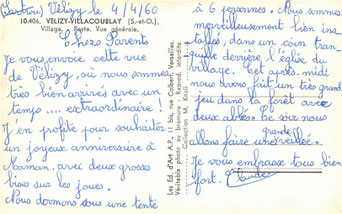 (Surtout) Vélizy le 4/4/60
10.406. VELIZY-VILLACOUBLAY (S.-et-O.).
Village. Poste. Vue générale.
Chers Parents
Je vous envoie cette vue
de Vélizy, où nous sommes
très bien arrivés avec un
temps .... extraordinaire !
J'en profite pour souhaiter
un joyeux anniversaire à
Maman, avec deux grosses
bises sur les joues.
Nous dormons sous une tente
Les Ed. d'Art A.P., bis, rue Colbert, Versailles.
Véritable photo au bromure - Reprod. interdite
Collection M. Knoll
à 6 personnes. Nous sommes
merveilleusement bien ins
tallés, dans un coin tran-
quille derrière l'église du
village. Cet après-midi
nous avons fait un très grand
jeu dans la forêt avec
deux autres. Ce soir nous
allons faire une grande veillée.
Je vous embrasse tous bien
fort. Claude